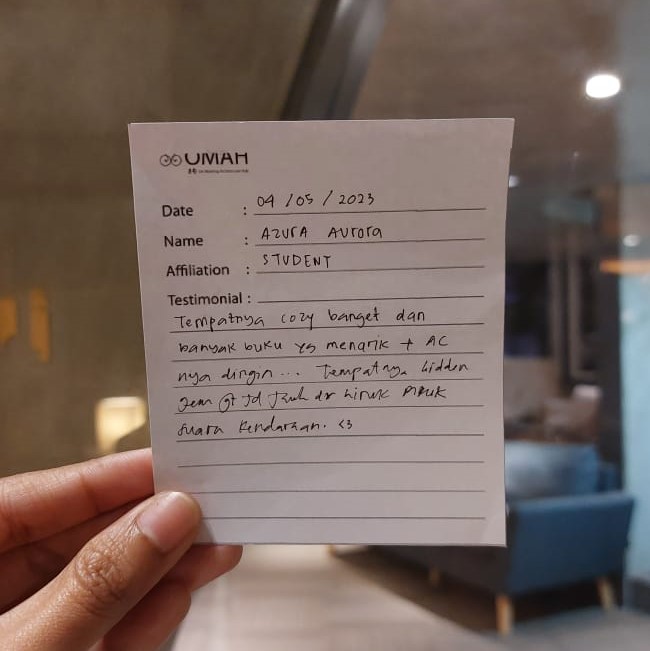 OMAH
Date : 04 / 05 / 2023
Name : AZURA AURORA
Affiliation : STUDENT
Testimonial :
Tempatnya cozy banget dan
banyak buku yg menarik + AC
nya dingin... Tempatnya hidden
gem gt jd jauh dr hiruk pikuk
suara kendaraan. <3